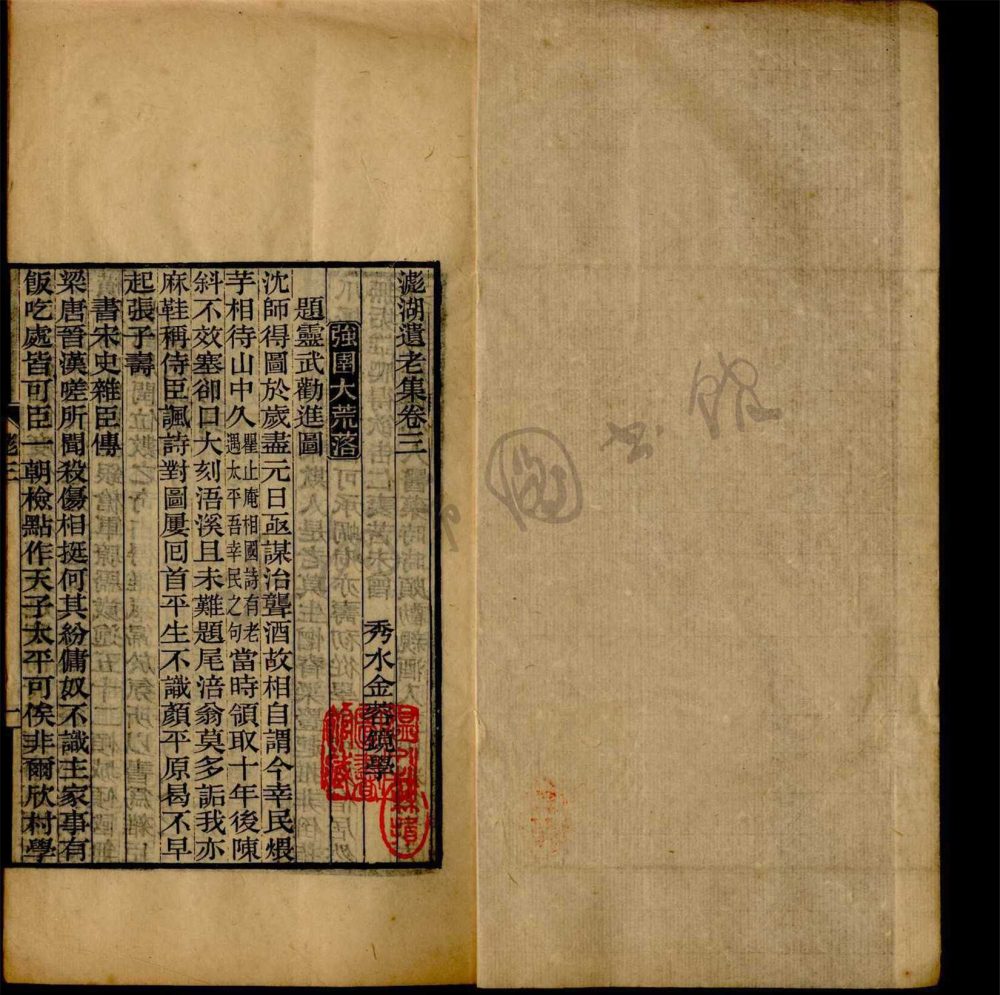 澎湖遺老集卷三
秀水金蓉鏡學
強圉大荒落
題靈武勸進圖
沈師得圖於歲盡元日亟謀治聾酒故相自謂今幸民煨
芋相待山中久瞿止庵相國詩有老遇太平吾幸民之句當時領取十年後陳
斜不效塞卻口大刻浯溪且未難題尾涪翁莫多詬我亦
麻鞋稱侍臣諷詩對圖屢囘首平生不識顏平原曷不早
起張子壽
書宋史雜臣傳
梁唐晉漢嗟所聞殺傷相挺何其紛傭奴不識主家事有
飯吃處皆可臣一朝檢點作天子太平可俟非爾欣村學
卷三
一
圖書館